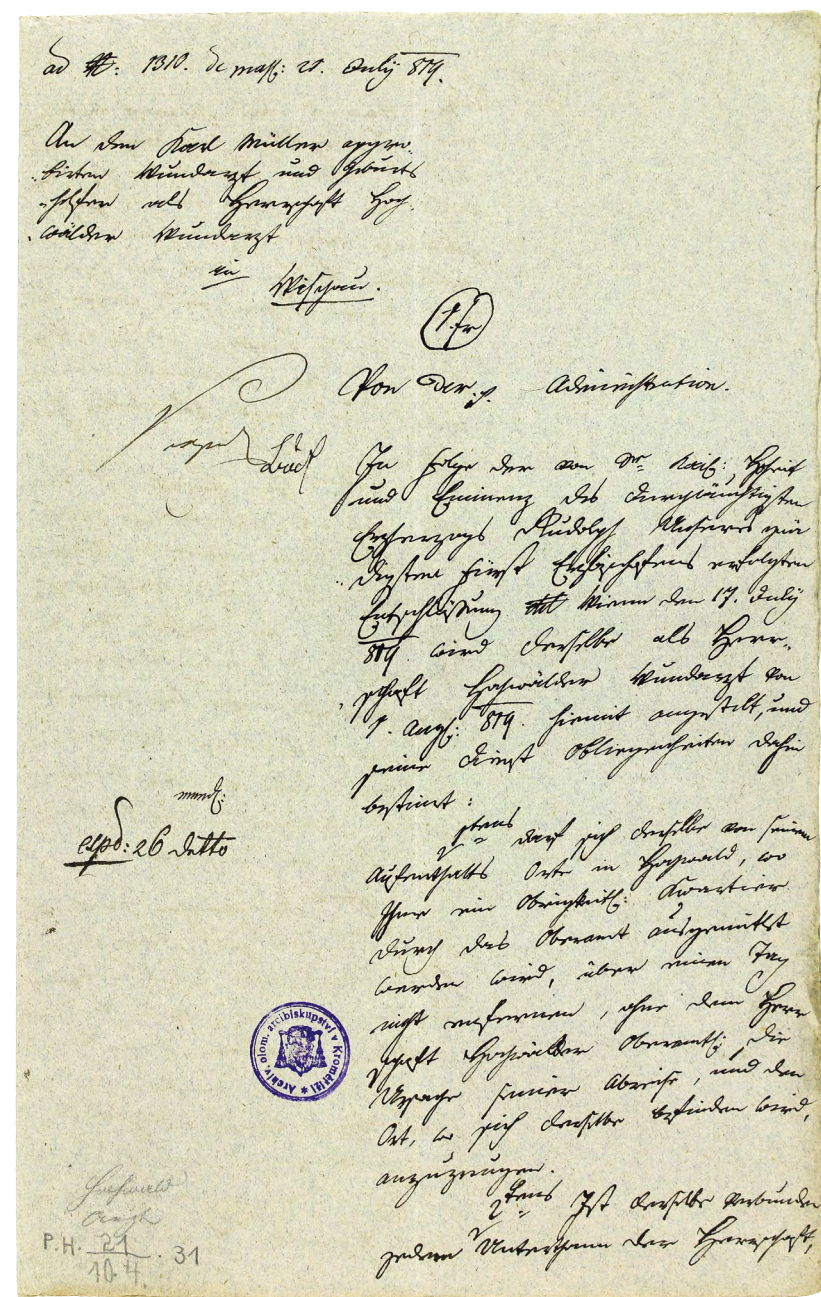 ad N: 1310. de praes: 21. July 819.
An den Karl Müller appro-
birten Wundarzt und Geburts
-helfer als Herrschaft Hoch
-wälder Wundarzt
in
Wischau.
1fr
Von der Administration.
In Folge der von Sr. Kais: Hoheit
und Eminenz des durchläuchtigsten
Erzherzogs Rudolph Unseres gnä
digsten Fürst Erzbischofens erfolgten
Entschlüßung Wienn den 17. July
819. wird derselbe als Herr-
schaft Hochwälder Wundarzt von
1. Aug: 819. hiemit angestelt, und
seine Dienst Obliegenheiten dahin
bestimt:
1stens darf sich derselbe von seinem
Aufenthalts Orte in Hochwald, wo
Ihme ein Obrigkeitl: Quartier
durch das Oberamt ausgemittelt
werden wird, über einen Tag
nicht entfernen, ohne dem Herr
schaft Hochwälder Oberamt, die
Ursache seiner Abreise, und den
Ort, wo sich derselbe befinden wird,
anzuzeugen.
2tens Ist derselbe verbunden
jedem Unterthann der Herrschaft,
mund:
expd: 26 detto
Archiv. olom. arcibiskupství v Kroměříži
Hochwald
P.H. 21/10.4. 31